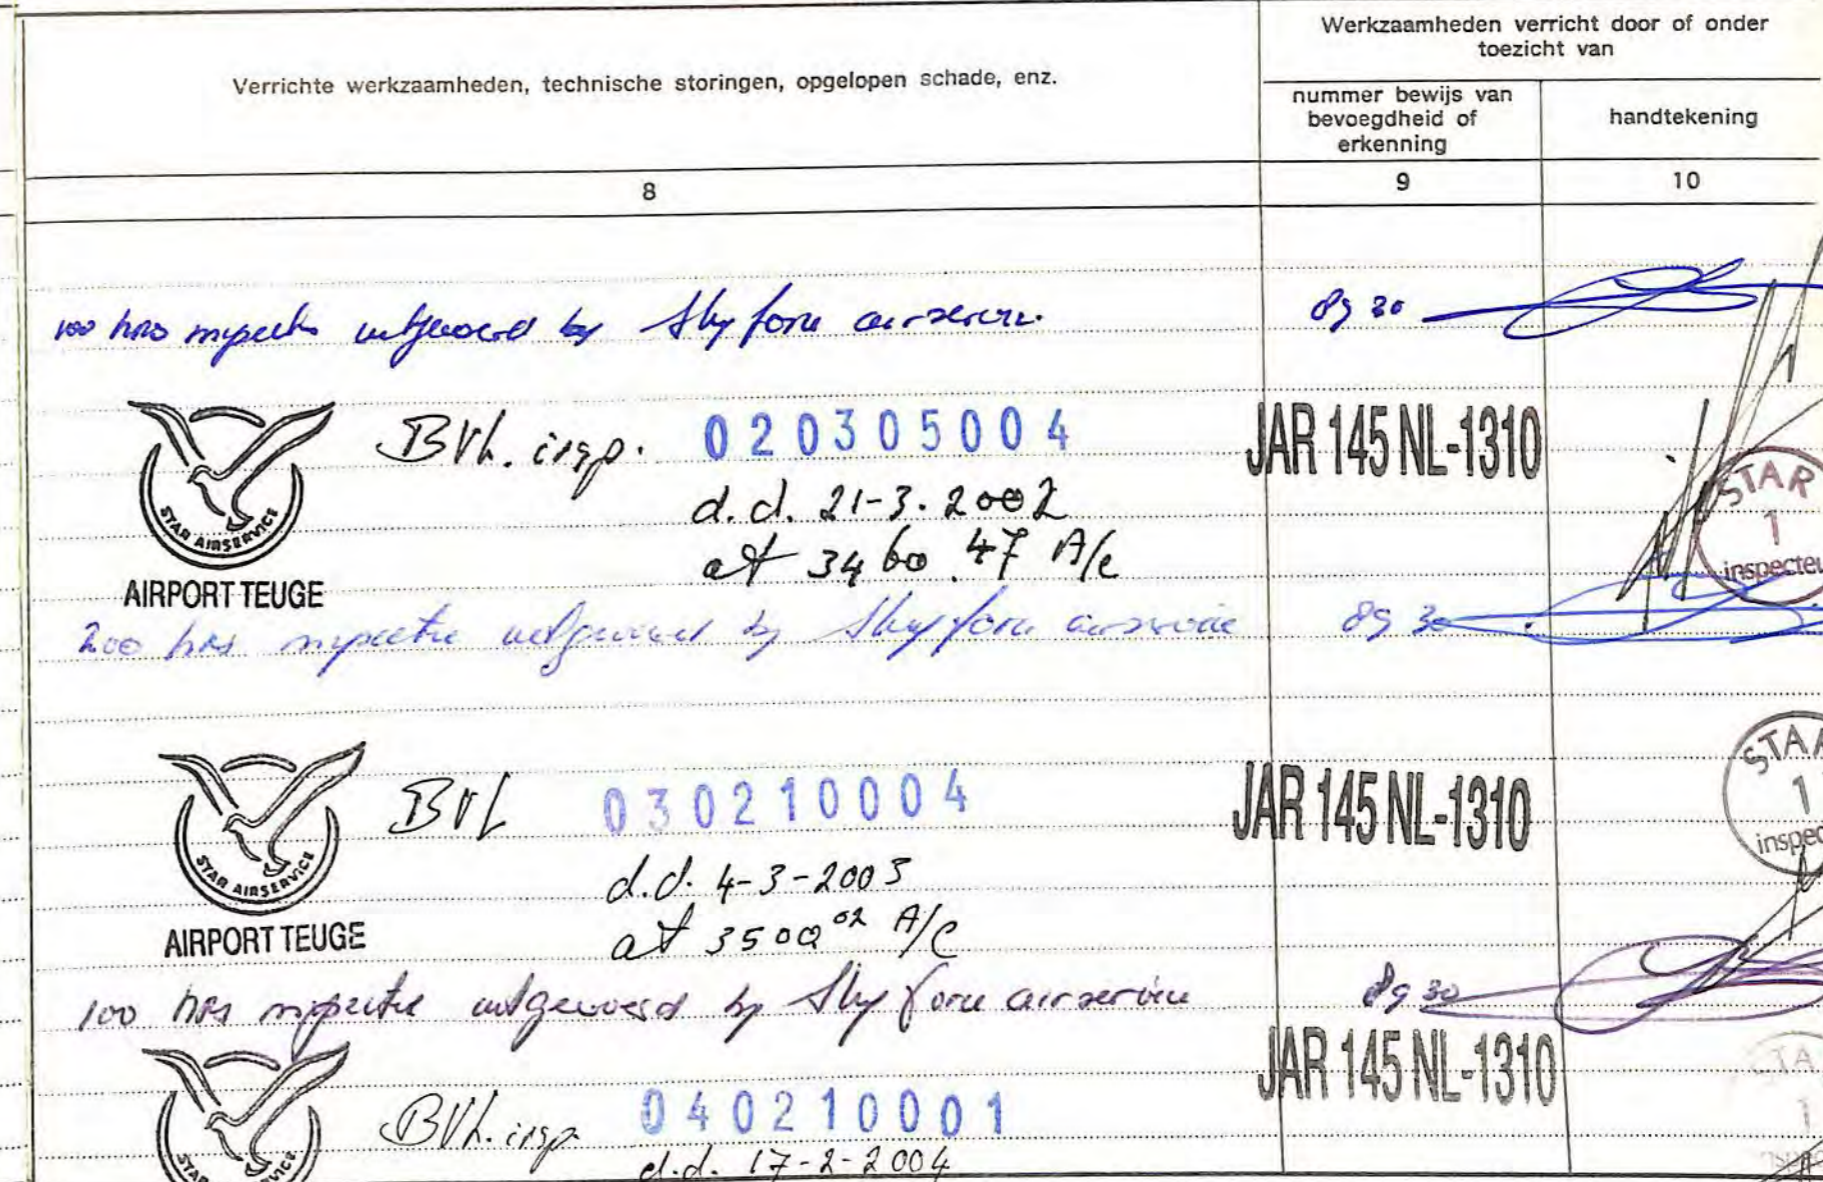 Verrichte werkzaamheden, technische storingen, opgelopen schade, enz.
Werkzaamheden verricht door of onder
toezicht van
nummer bewijs van
bevoegdheid of
erkenning
handtekening
8
9
10
100 hrs inspectie uitgevoerd by Skyforce airservice.
8930
STAR AIRSERVICE
AIRPORT TEUGE
BVh. insp. 020305004
d.d. 21-3-2002
at 3460.47 A/C
JAR 145 NL-1310
STAR
1
inspecteu
200 hrs inspectie uitgevoerd by airservice
8930
STAR AIRSERVICE
AIRPORT TEUGE
BVh 030210004
d.d. 4-3-2003
at 3500 02 A/C
JAR 145 NL-1310
STAR
1
inspec
100 hrs inspectie uitgevoerd by airservice
8930
STAR AIRSERVICE
BVh. insp. 040210001
d.d. 17-2-2004
JAR 145 NL-1310
STA
1